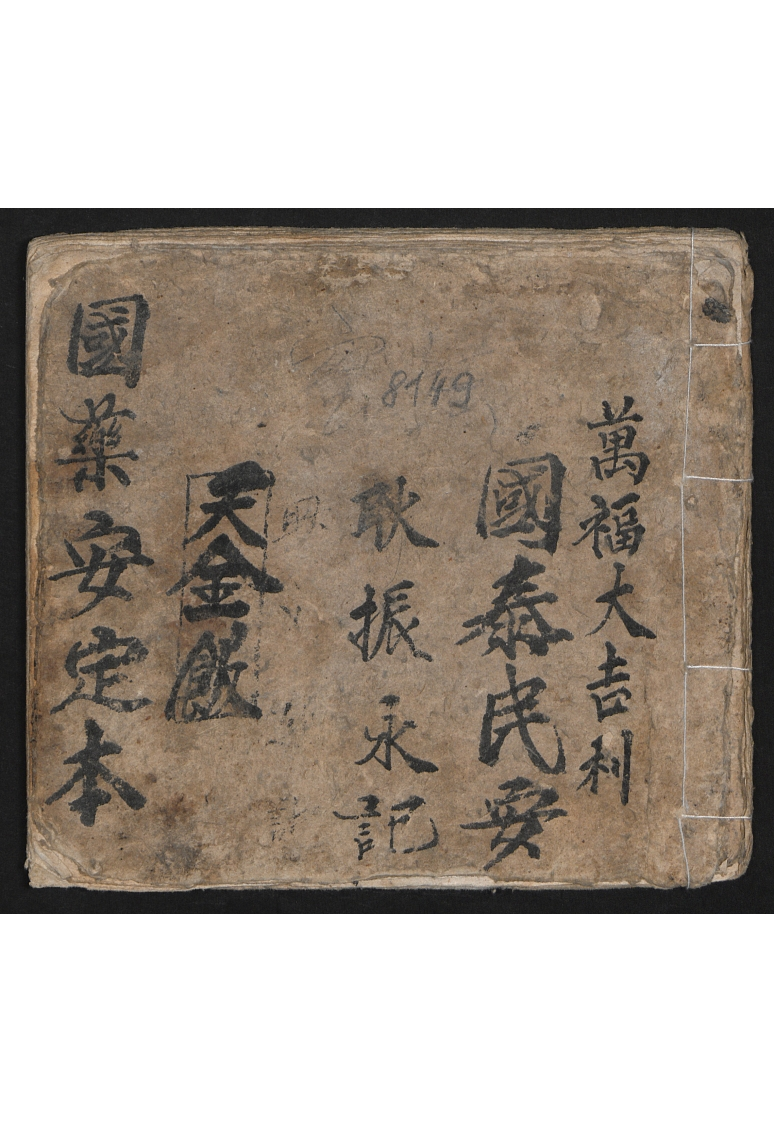 萬福大吉利
國泰民安
8149
耿振永記
天金飲
國藥安定本